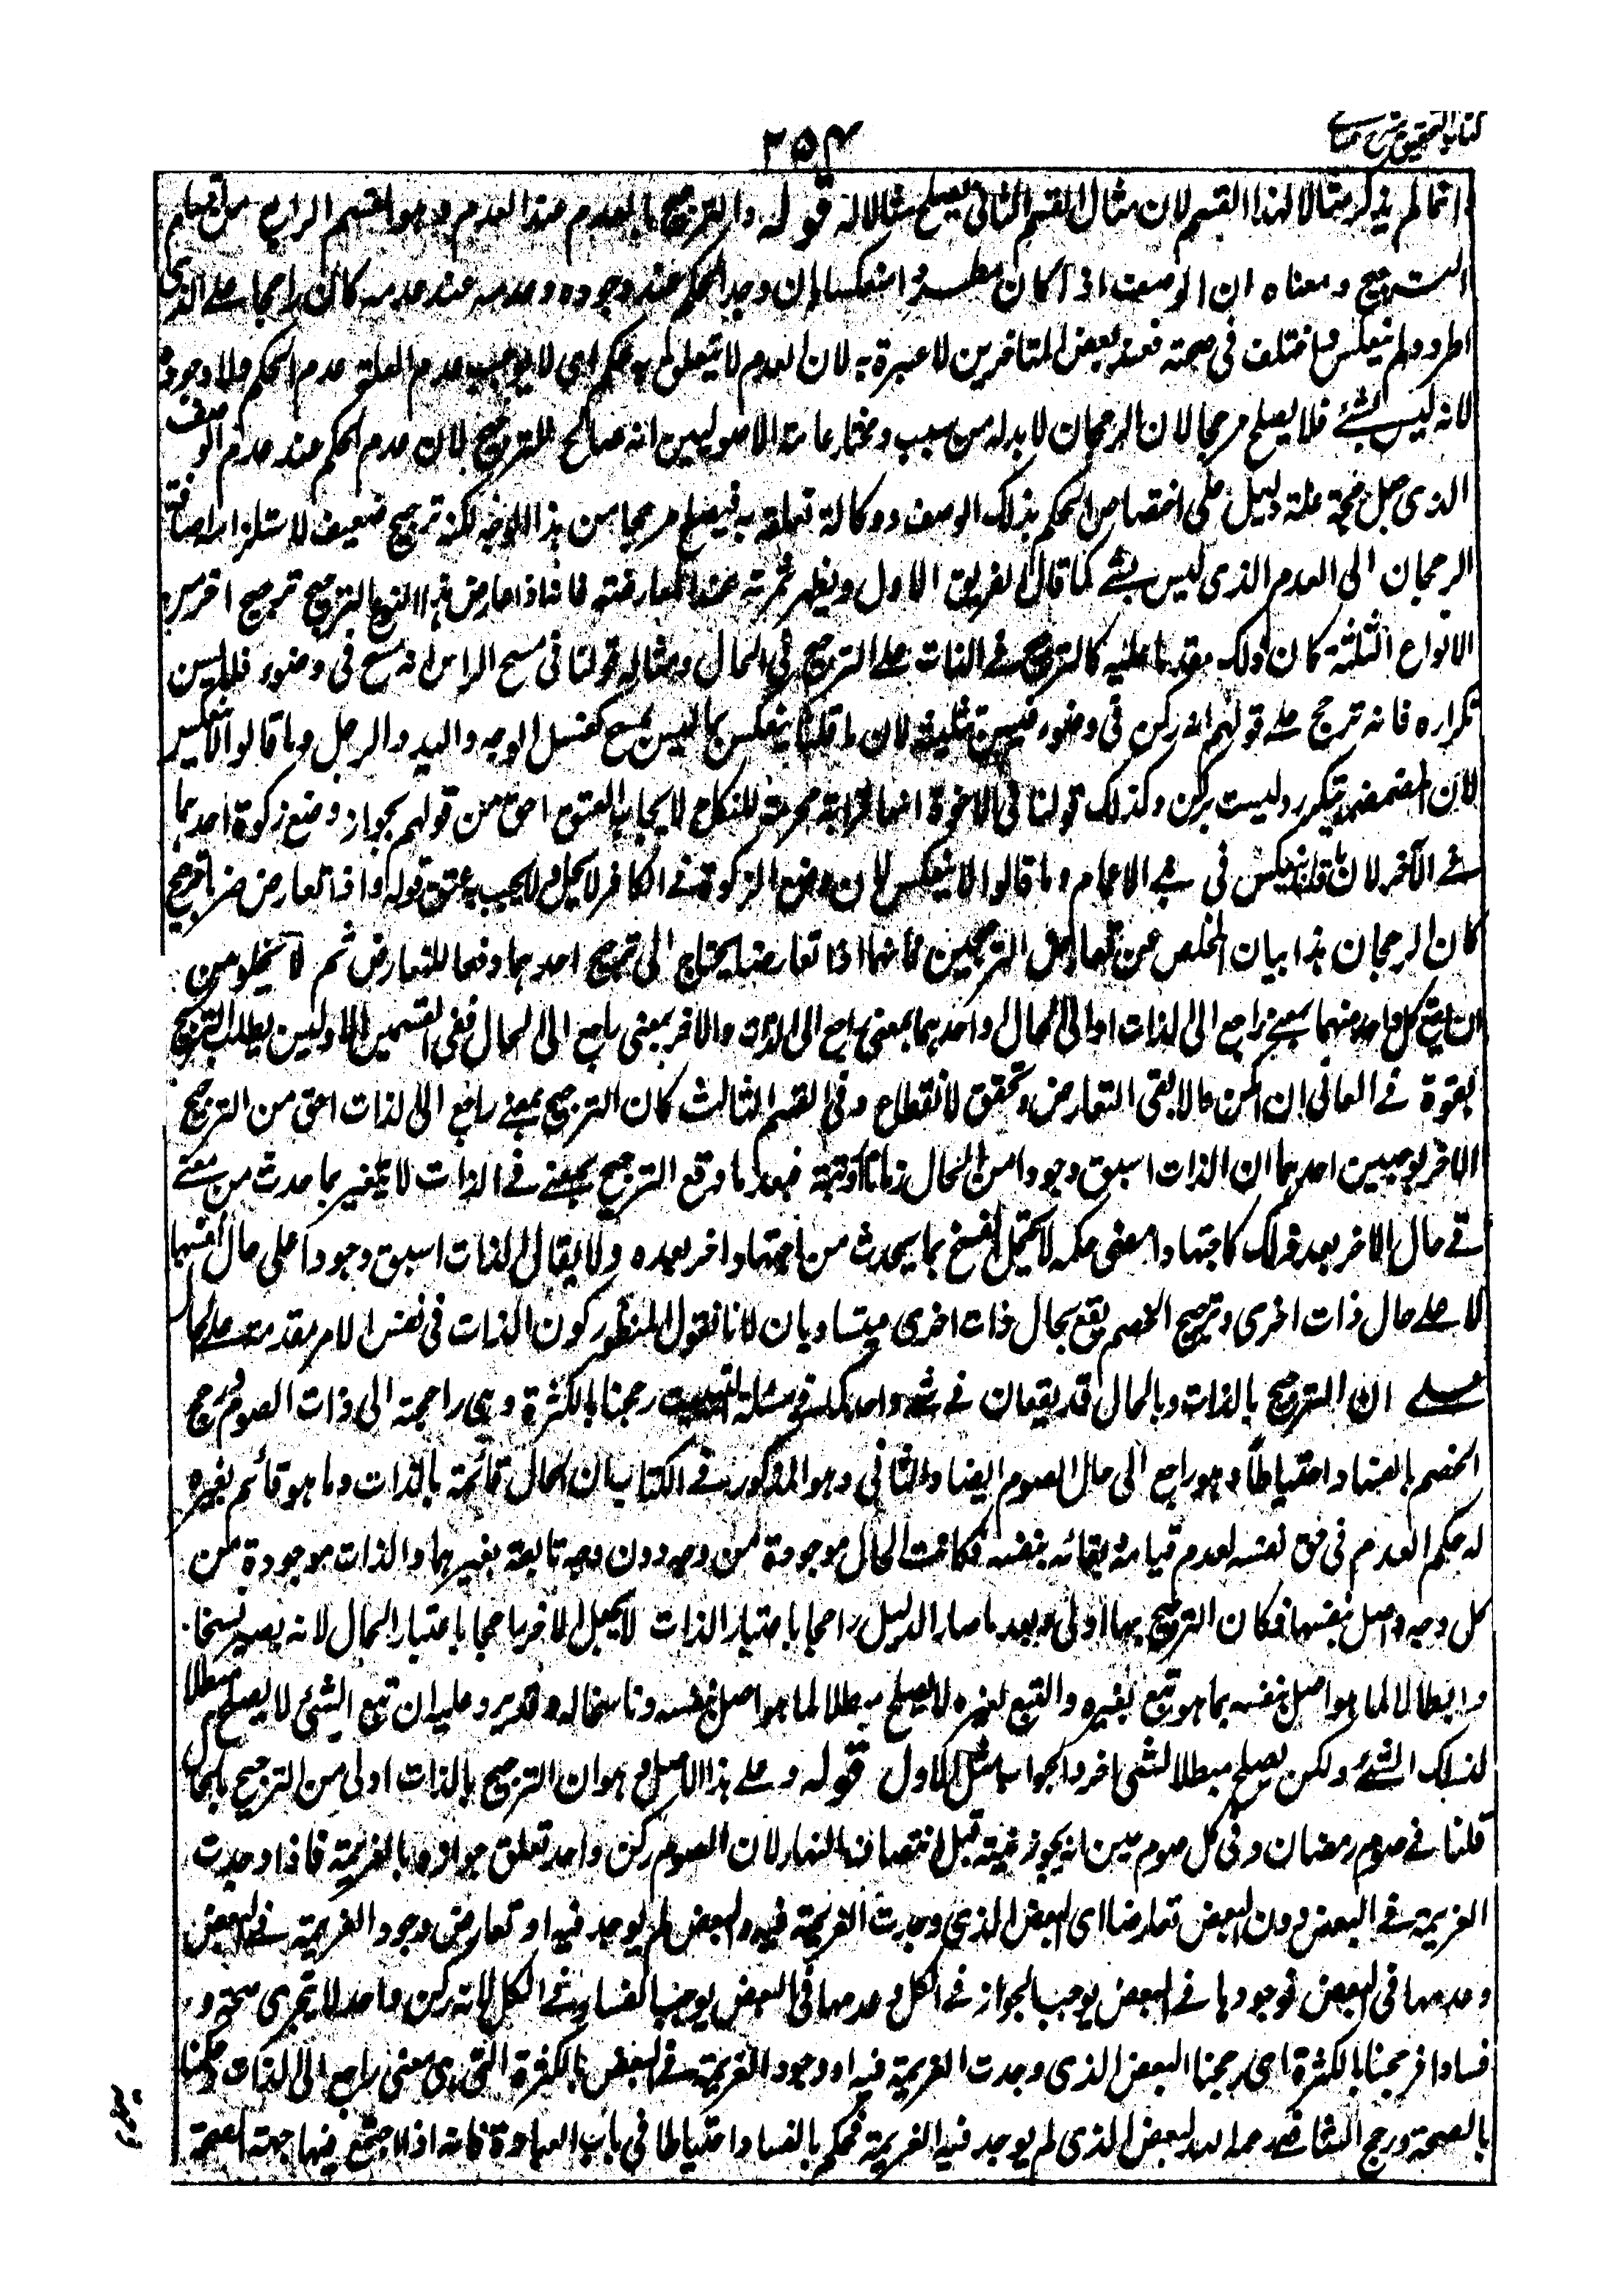 كتاب التحقيق شرح حسامي
٢٥٣
انما لم يذكر مثالا لهذا القسم لان مثال القسم الثاني يصلح مثالا له قوله والترجيح بالعدم عند العدم وهو القسم الرابع من اقسام
الترجيح ومعناه ان الوصف اذا كان مطردا منعكسا بان وجد الحكم عند وجوده وعدمه عند عدمه كان راجحا على الذي
اطرد ولم ينعكس واختلف في صحته فعند بعض المتاخرين لا عبرة به لان العدم لا يتعلق به حكم اي لا يوجب عدم العلة عدم الحكم ولا وجوده
لانه ليس بشئ فلا يصلح مرجحا لان الرجحان لا بد له من سبب ومختار عامة الاصوليين انه صالح للترجيح لان عدم الحكم عند عدم الوصف
الذي جعل حجة علة دليل على اختصاص الحكم بذلك الوصف ووكالة تعلقه به فيصلح مرجحا من هذا الوجه لكنه ترجيح ضعيف لاستلزامه اضافة
الرجحان الى العدم الذي ليس بشئ كما قال الفريق الاول ويظهر ثمرته عند المعارضة فانه اذا عارض هذا النوع الترجيح ترجيح اخر من
الانواع الثلثة كان ذلك مقدما عليه كالترجيح في الذات على الترجيح في الحال ومثاله قولنا في مسح الراس انه مسح في وضوء فلا يسن
تكراره فانه ترجح على قولهم انه ركن في وضوء فيسن تثليثه لان ما قلنا ينعكس بما ليس بمسح كغسل الوجه واليد والرجل وما قالوا لا ينعكس
لان المضمضة تتكرر وليست بركن وكذلك قولنا في الاخوة انها قرابة محرمة للنكاح لايجاب العتق احق من قولهم بجواز وضع زكوة احدهما
في الآخر لان ما قلنا ينعكس في بني الاعمام وما قالوا لا ينعكس لان وضع الزكوة في الكافر لا يحل ولا يجب به عتق قوله واذا تعارض ضربا ترجيح
كان الرجحان هذا بيان المخلص عن تعارض الترجيحين فانهما اذا تعارضا يحتاج الى ترجيح احدهما دفعا للتعارض ثم لا يخلو من
ان يقع كل واحد منهما بمعنى راجع الى الذات او الى الحال او احدهما بمعنى راجع الى الذات والاخر بمعنى راجع الى الحال ففي القسمين الاولين يطلب الترجيح
بقوة في المعاني ان امكن والا بقي التعارض وتحقق الانقطاع وفي القسم الثالث كان الترجيح بمعنى راجع الى الذات احق من الترجيح
الاخر بوجهين احدهما ان الذات اسبق وجودا من الحال زمانا او رتبة فبعد ما وقع الترجيح بمعنى في الذات لا يتغير بما حدث من معنى
في حال الاخر بعد ذلك كاجتهاد امضى حكمه لا يحتمل الفسخ بما يحدث من اجتهاد اخر بعده ولا يقال الذات اسبق وجودا على حال نفسها
لا على حال ذات اخرى وترجيح الخصم يقع بحال ذات اخرى فيتساويان لانا نقول المنظور كون الذات في نفس الامر مقدمة على الحال
على ان الترجيح بالذات وبالحال قد يقعان في شئ واحد كما في مسئلة التبييت رجحنا بالكثرة وهي راجعة الى ذات الصوم ورجح
الخصم بالفساد احتياطا وهو راجع الى حال الصوم ايضا والثاني وهو المذكور في الكتاب ان الحال قائمة بالذات وما هو قائم بغيره
له حكم العدم في حق نفسه لعدم قيامه وبقائه بنفسه فكانت الحال موجودة من وجه دون وجه تابعة بغيرها والذات موجودة من
كل وجه واصل بنفسها فكان الترجيح بها اولى وبعد ما صار الدليل راجحا باعتبار الذات لا يجعل الاخر راجحا باعتبار الحال لانه يصير نسخا
وابطالا لما هو اصل بنفسه بما هو تبع لغيره والتبع لغيره لا يصلح مبطلا لما هو اصل بنفسه وناسخا له وقد يرد عليه ان تبع الشئ لا يصلح مبطلا
لذلك الشئ ولكن يصلح مبطلا لشئ اخر والجواب مثل الاول قوله وعلى هذا الاصل وهو ان الترجيح بالذات اولى من الترجيح بالحال
قلنا في صوم رمضان وفي كل صوم عين انه يجوز بنيته قبل انتصاف النهار لان الصوم ركن واحد تعلق جوازه بالعزيمة فاذا وجدت
العزيمة في البعض دون البعض تعارضا اي البعض الذي وجدت العزيمة فيه والبعض لم يوجد فيه او تعارض وجود العزيمة في البعض
وعدمها في البعض فوجودها في البعض يوجب الجواز في الكل وعدمها في البعض يوجب الفساد في الكل لانه ركن واحد لا يتجزى صحة و
فسادا فرجحنا بالكثرة اي رجحنا البعض الذي وجدت العزيمة فيه او وجود العزيمة في البعض بالكثرة التي هي معنى راجع الى الذات وحكمنا
بالصحة ورجح الشافعي رحمه الله البعض الذي لم يوجد فيه العزيمة فحكم بالفساد احتياطا في باب العبادة فانه اذا اجتمع فيها جهة الصحة